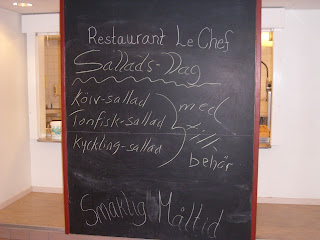 Restaurant Le Chef
Sallads-Dag
Köiv-sallad
Tonfisk-sallad
Kyckling-sallad
med
till
behör
Smaklig Måltid